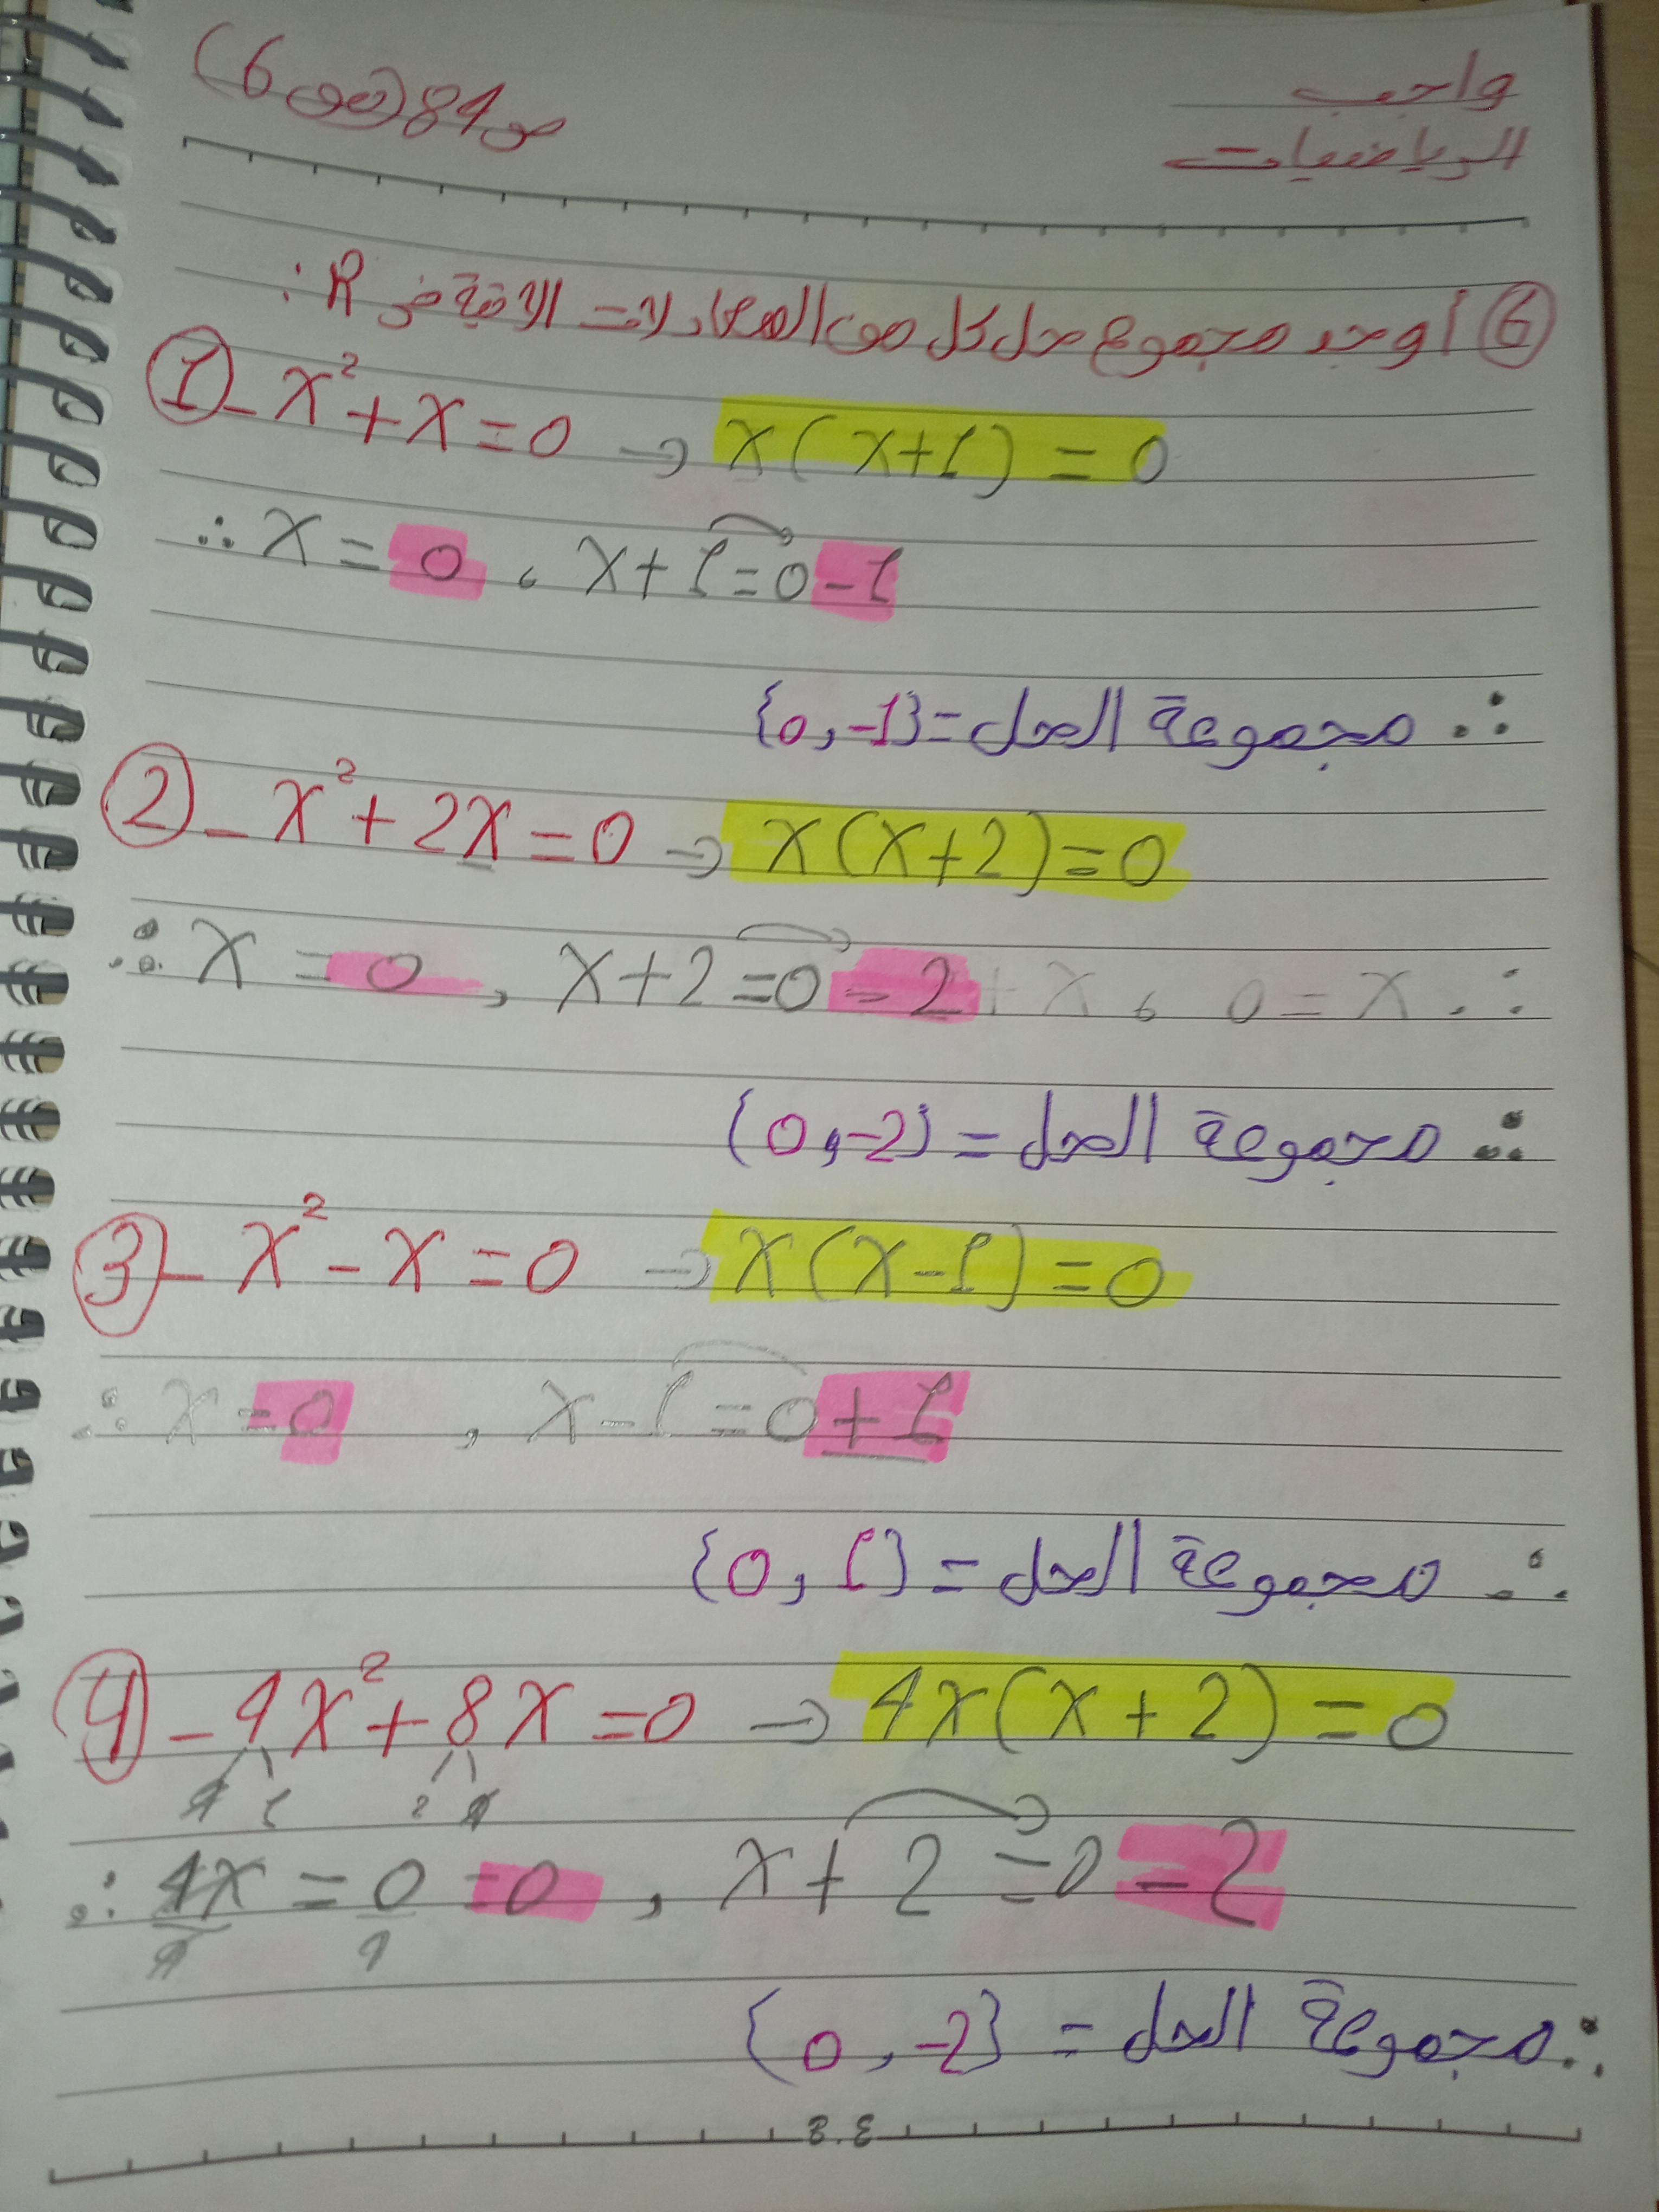 واجب
الرياضيات
ص84 (س6)
⑥ أوجد مجموع حل كل من المعادلات الاتية في R:
①- x² + x = 0 → x(x+1) = 0
∴ x = 0 ، x+1 = 0 -1
∴ مجموعة الحل = {0, -1}
②- x² + 2x = 0 → x(x+2) = 0
∴ x = 0 , x+2 = 0 -2 + x ، 0 = x ∴
∴ مجموعة الحل = {0, -2}
③- x² - x = 0 → x(x-1) = 0
∴ x = 0 , x-1 = 0 +1
∴ مجموعة الحل = {0, 1}
④- 4x² + 8x = 0 → 4x(x+2) = 0
4 1 2 4
∴ 4x = 0 = 0 , x+2 = 0 -2
4 4
∴ مجموعة الحل = {0, -2}